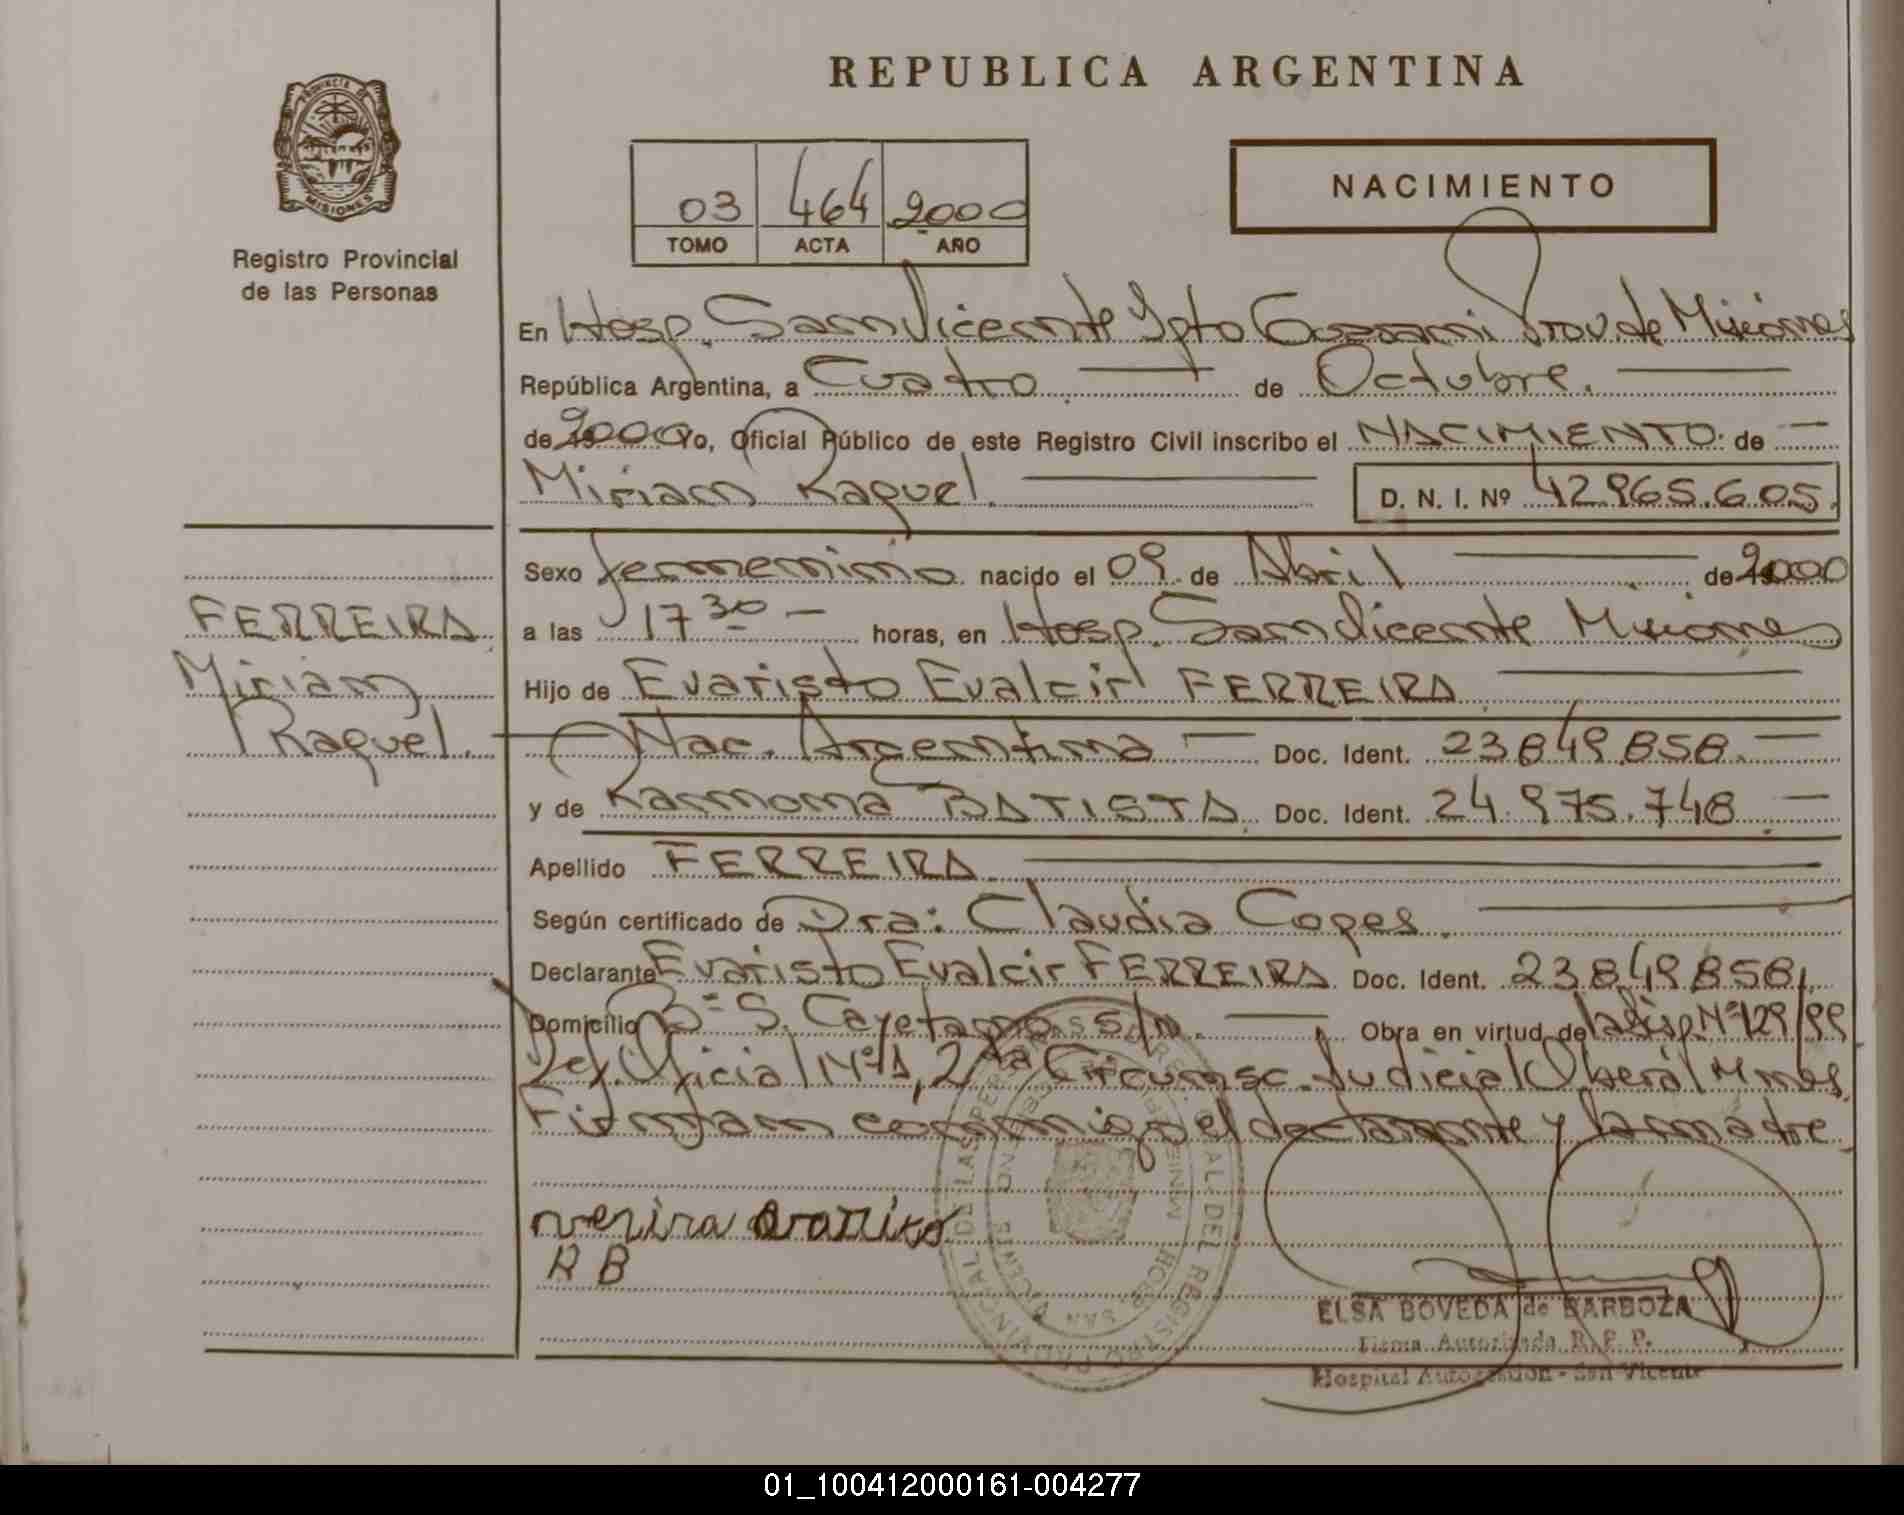 PROVINCIA DE
MISIONES
Registro Provincial
de las Personas
REPUBLICA ARGENTINA
03 464 2000
TOMO ACTA AÑO
NACIMIENTO
En Hosp. San Vicente Dpto Guarani Prov. de Misiones
República Argentina, a Cuatro de Octubre.
de 2000 Yo, Oficial Público de este Registro Civil inscribo el NACIMIENTO. de
Miriam Raquel. D. N. I. Nº 42.965.605.
Sexo femenino nacido el 09 de Abril de 2000
a las 17 30 horas, en Hosp. San Vicente Misiones
Hijo de Evaristo Evalcir FERREIRA
Nac. Argentina Doc. Ident. 23.849.858.
y de Ramona BATISTA. Doc. Ident. 24.975.748.
Apellido FERREIRA
Según certificado de Dra: Claudia Copes.
Declarante Evaristo Evalcir FERREIRA Doc. Ident. 23.849.858,
Domicilio Bº S. Cayetano s/n. Obra en virtud de la Disp. Nº 129/99
Def. Oficial Nº 1, 2da Circunsc. Judicial Oberá Mnes.
Firman conmigo el declarante y la madre
FERREIRA
Miriam
Raquel.
R B
ELSA BOVEDA de BARBOZA
Firma Autorizada R. P. P.
Hospital Autogestion - San Vicente
01_100412000161-004277